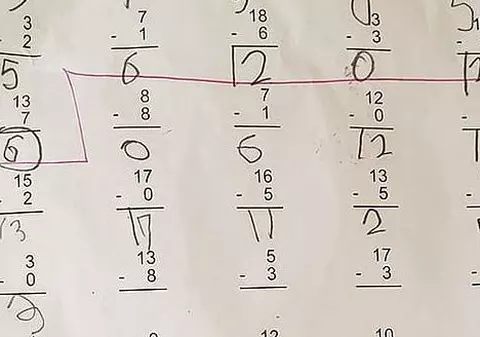 3 7 18 3
- 2 - 1 - 6 - 3
5 6 12 0
13 8 7 12
7 - 8 - 1 - 0
6 0 6 12
15 17 16 13
- 2 - 0 - 5 - 5
13 17 11 2
3 13 5 17
- 0 - 8 - 3 - 3
3
12 10